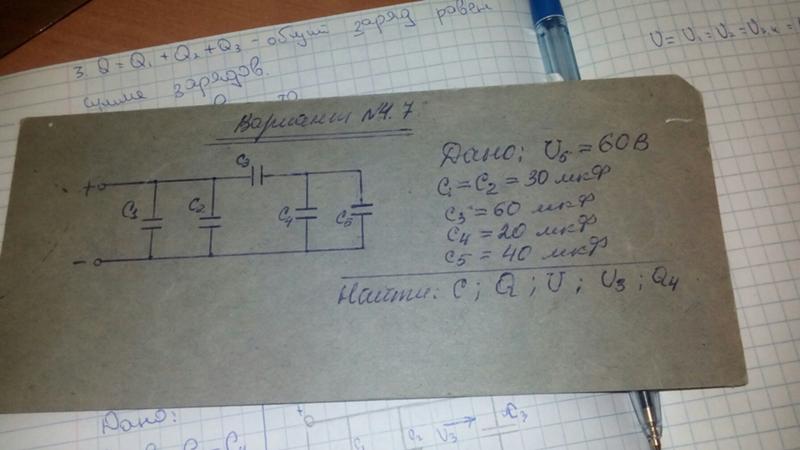 3. Q = Q₁ + Q₂ + Q₃ - общий заряд равен
сумме зарядов.
U = U₁ = U₂ =
Вариант №4.7
+
C₁
C₂
C₃
C₄
C₅
-
Дано: U₅ = 60В
C₁ = C₂ = 30 мкФ
C₃ = 60 мкФ
C₄ = 20 мкФ
C₅ = 40 мкФ
Найти: C; Q; U; U₃; Q₄
Дано:
+
C₁
C₂
U₃